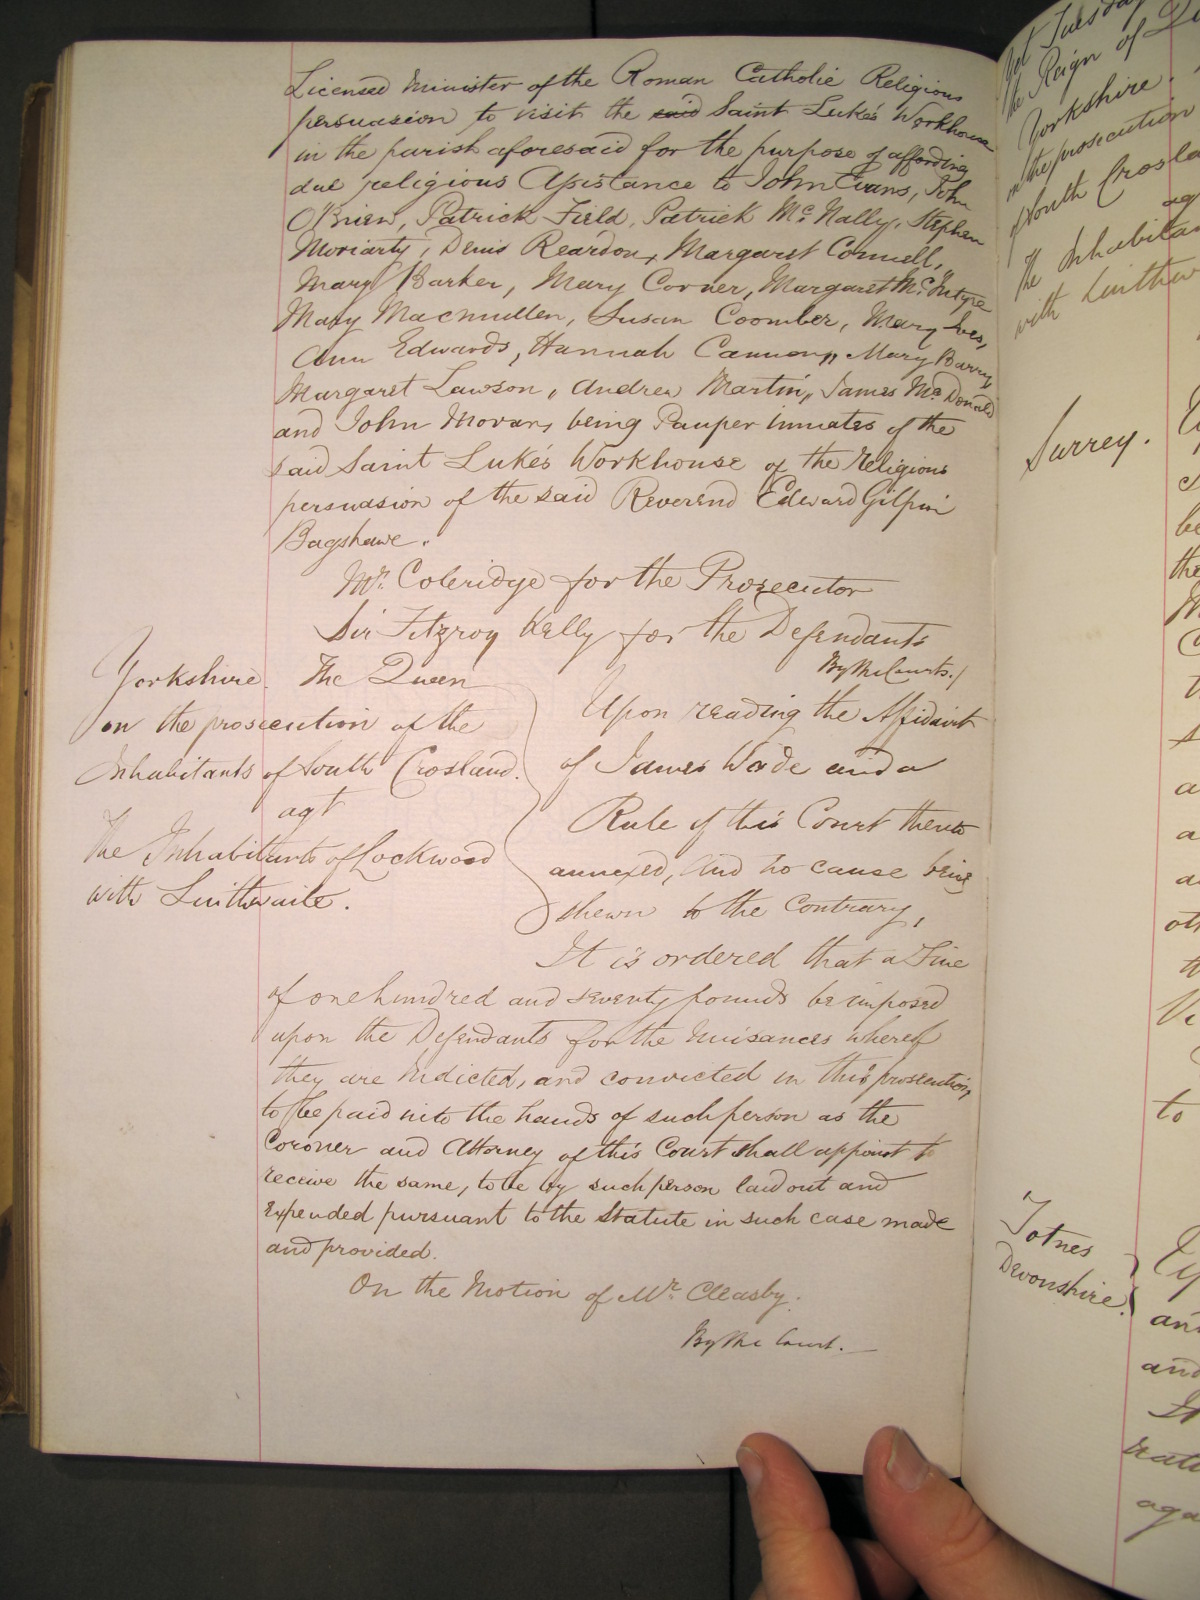 Licensed Minister of the Roman Catholic Religious
persuasion to visit the said Saint Luke's Workhouse
in the parish aforesaid for the purpose of affording
due religious Assistance to John Evans, John
O'Brien, Patrick Field, Patrick McNally, Stephen
Moriarty, Denis Reardon, Margaret Connell,
Mary Barker, Mary Corner, Margaret McIntyre
Mary Macmullen, Susan Coomber, Mary Ives,
Ann Edwards, Hannah Cannon, Mary Barry,
Margaret Lawson, Andrew Martin, James McDonald
and John Moran, being Pauper inmates of the
said Saint Luke's Workhouse of the religious
persuasion of the said Reverend Edward Gilpin
Bagshawe.
Mr. Coleridge for the Prosecutor
Sir Fitzroy Kelly for the Defendants
By the Court./
Yorkshire. The Queen
on the prosecution of the
Inhabitants of South Crosland.
agt
The Inhabitants of Lockwood
with Linthwaite.
Upon reading the Affidavit
of James Wade and a
Rule of this Court thereto
annexed, And no cause being
shewn to the Contrary,
It is ordered that a Fine
of one hundred and seventy pounds be imposed
upon the Defendants for the Nuisances whereof
they are indicted, and convicted in this prosecution,
to be paid into the hands of such person as the
Coroner and Attorney of this Court shall appoint to
receive the same, to be by such person laid out and
expended pursuant to the Statute in such case made
and provided.
On the Motion of Mr. Cleasby.
By the Court.
Yet Tuesday
the Reign of
Yorkshire.
on the prosecution
South Crosla
ag
The Inhabitan
with Linthw
Surrey.
be
the
a
a
oth
th
to
Totnes
Devonshire.
and
and
aga